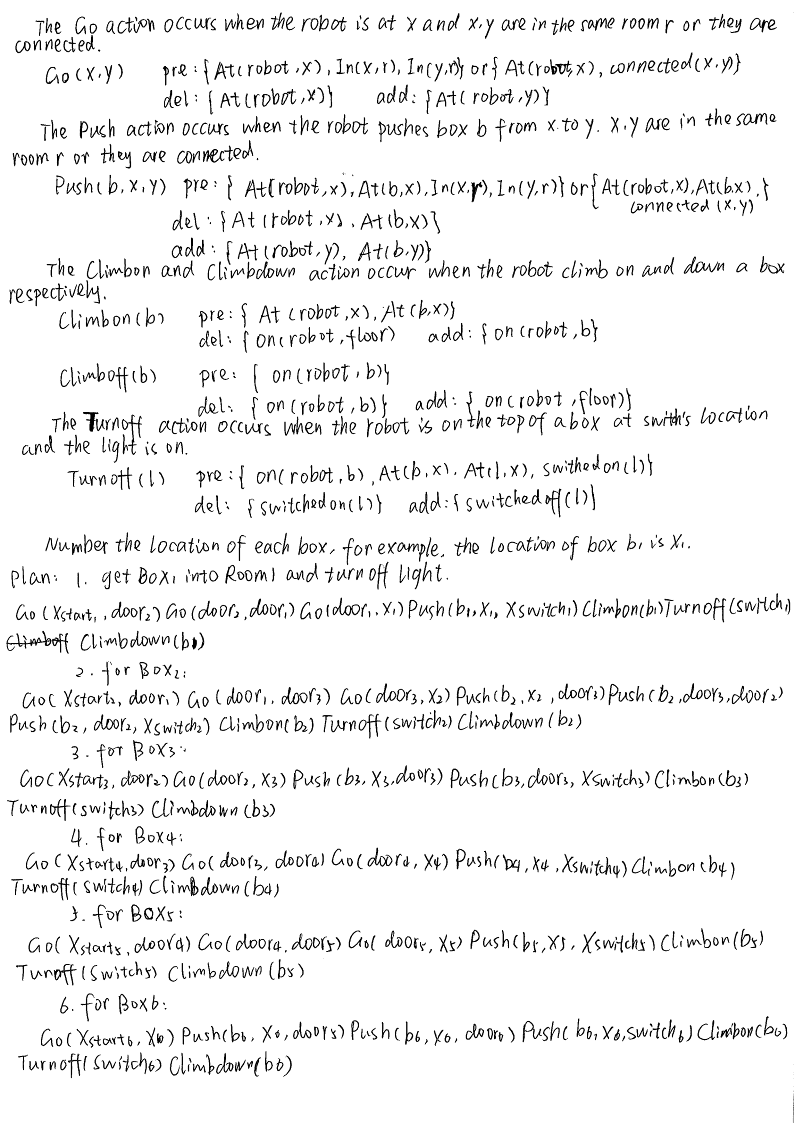 The Go action occurs when the robot is at x and x,y are in the same room r or they are
connected.
Go(x,y) pre:{At(robot,x), In(x,r), In(y,r)} or {At(robot,x), connected(x,y)}
del:{At(robot,x)} add:{At(robot,y)}
The Push action occurs when the robot pushes box b from x to y. x,y are in the same
room r or they are connected.
Push(b,x,y) pre:{At(robot,x), At(b,x), In(x,r), In(y,r)} or {At(robot,x), At(b,x),}
connected(x,y)
del:{At(robot,x), At(b,x)}
add:{At(robot,y), At(b,y)}
The Climbon and Climbdown action occur when the robot climb on and down a box
respectively.
Climbon(b) pre:{At(robot,x), At(b,x)}
del:{on(robot,floor) add:{on(robot,b}
Climboff(b) pre: { on(robot,b)}
del: {on(robot,b)} add: {on(robot,floor)}
The Turnoff action occurs when the robot is on the top of a box at swith's location
and the light is on.
Turnoff(l) pre:{on(robot,b), At(b,x), At(l,x), swithedon(l)}
del: {switchedon(l)} add:{switchedoff(l)}
Number the location of each box, for example, the location of box b₁ is X₁.
Plan: 1. get Box₁ into Room1 and turn off light.
Go(Xstart₁, door₂) Go(door₂, door₁) Go(door₁, X₁) Push(b₁, X₁, Xswitch₁) Climbon(b₁) Turnoff(switch₁)
Climboff Climbdown(b₁)
2. for Box₂:
Go(Xstart₂, door₁) Go(door₁, door₃) Go(door₃, X₂) Push(b₂, x₂, door₃) Push(b₂, door₃, door₂)
Push(b₂, door₂, Xswitch₂) Climbon(b₂) Turnoff(switch₂) Climbdown(b₂)
3. for Box₃:
Go(Xstart₃, door₂) Go(door₂, X₃) Push(b₃, X₃, door₃) Push(b₃, door₃, Xswitch₃) Climbon(b₃)
Turnoff(switch₃) Climbdown(b₃)
4. for Box₄:
Go(Xstart₄, door₃) Go(door₃, door₄) Go(door₄, X₄) Push(b₄, X₄, Xswitch₄) Climbon(b₄)
Turnoff(switch₄) Climbdown(b₄)
5. for Box₅:
Go(Xstart₅, door₄) Go(door₄, door₅) Go(door₅, X₅) Push(b₅, X₅, Xswitch₅) Climbon(b₅)
Turnoff(Switch₅) Climbdown(b₅)
6. for Box₆:
Go(Xstart₆, X₆) Push(b₆, X₆, door₅) Push(b₆, X₆, door₆) Push(b₆, X₆, switch₆) Climbon(b₆)
Turnoff(Switch₆) Climbdown(b₆)